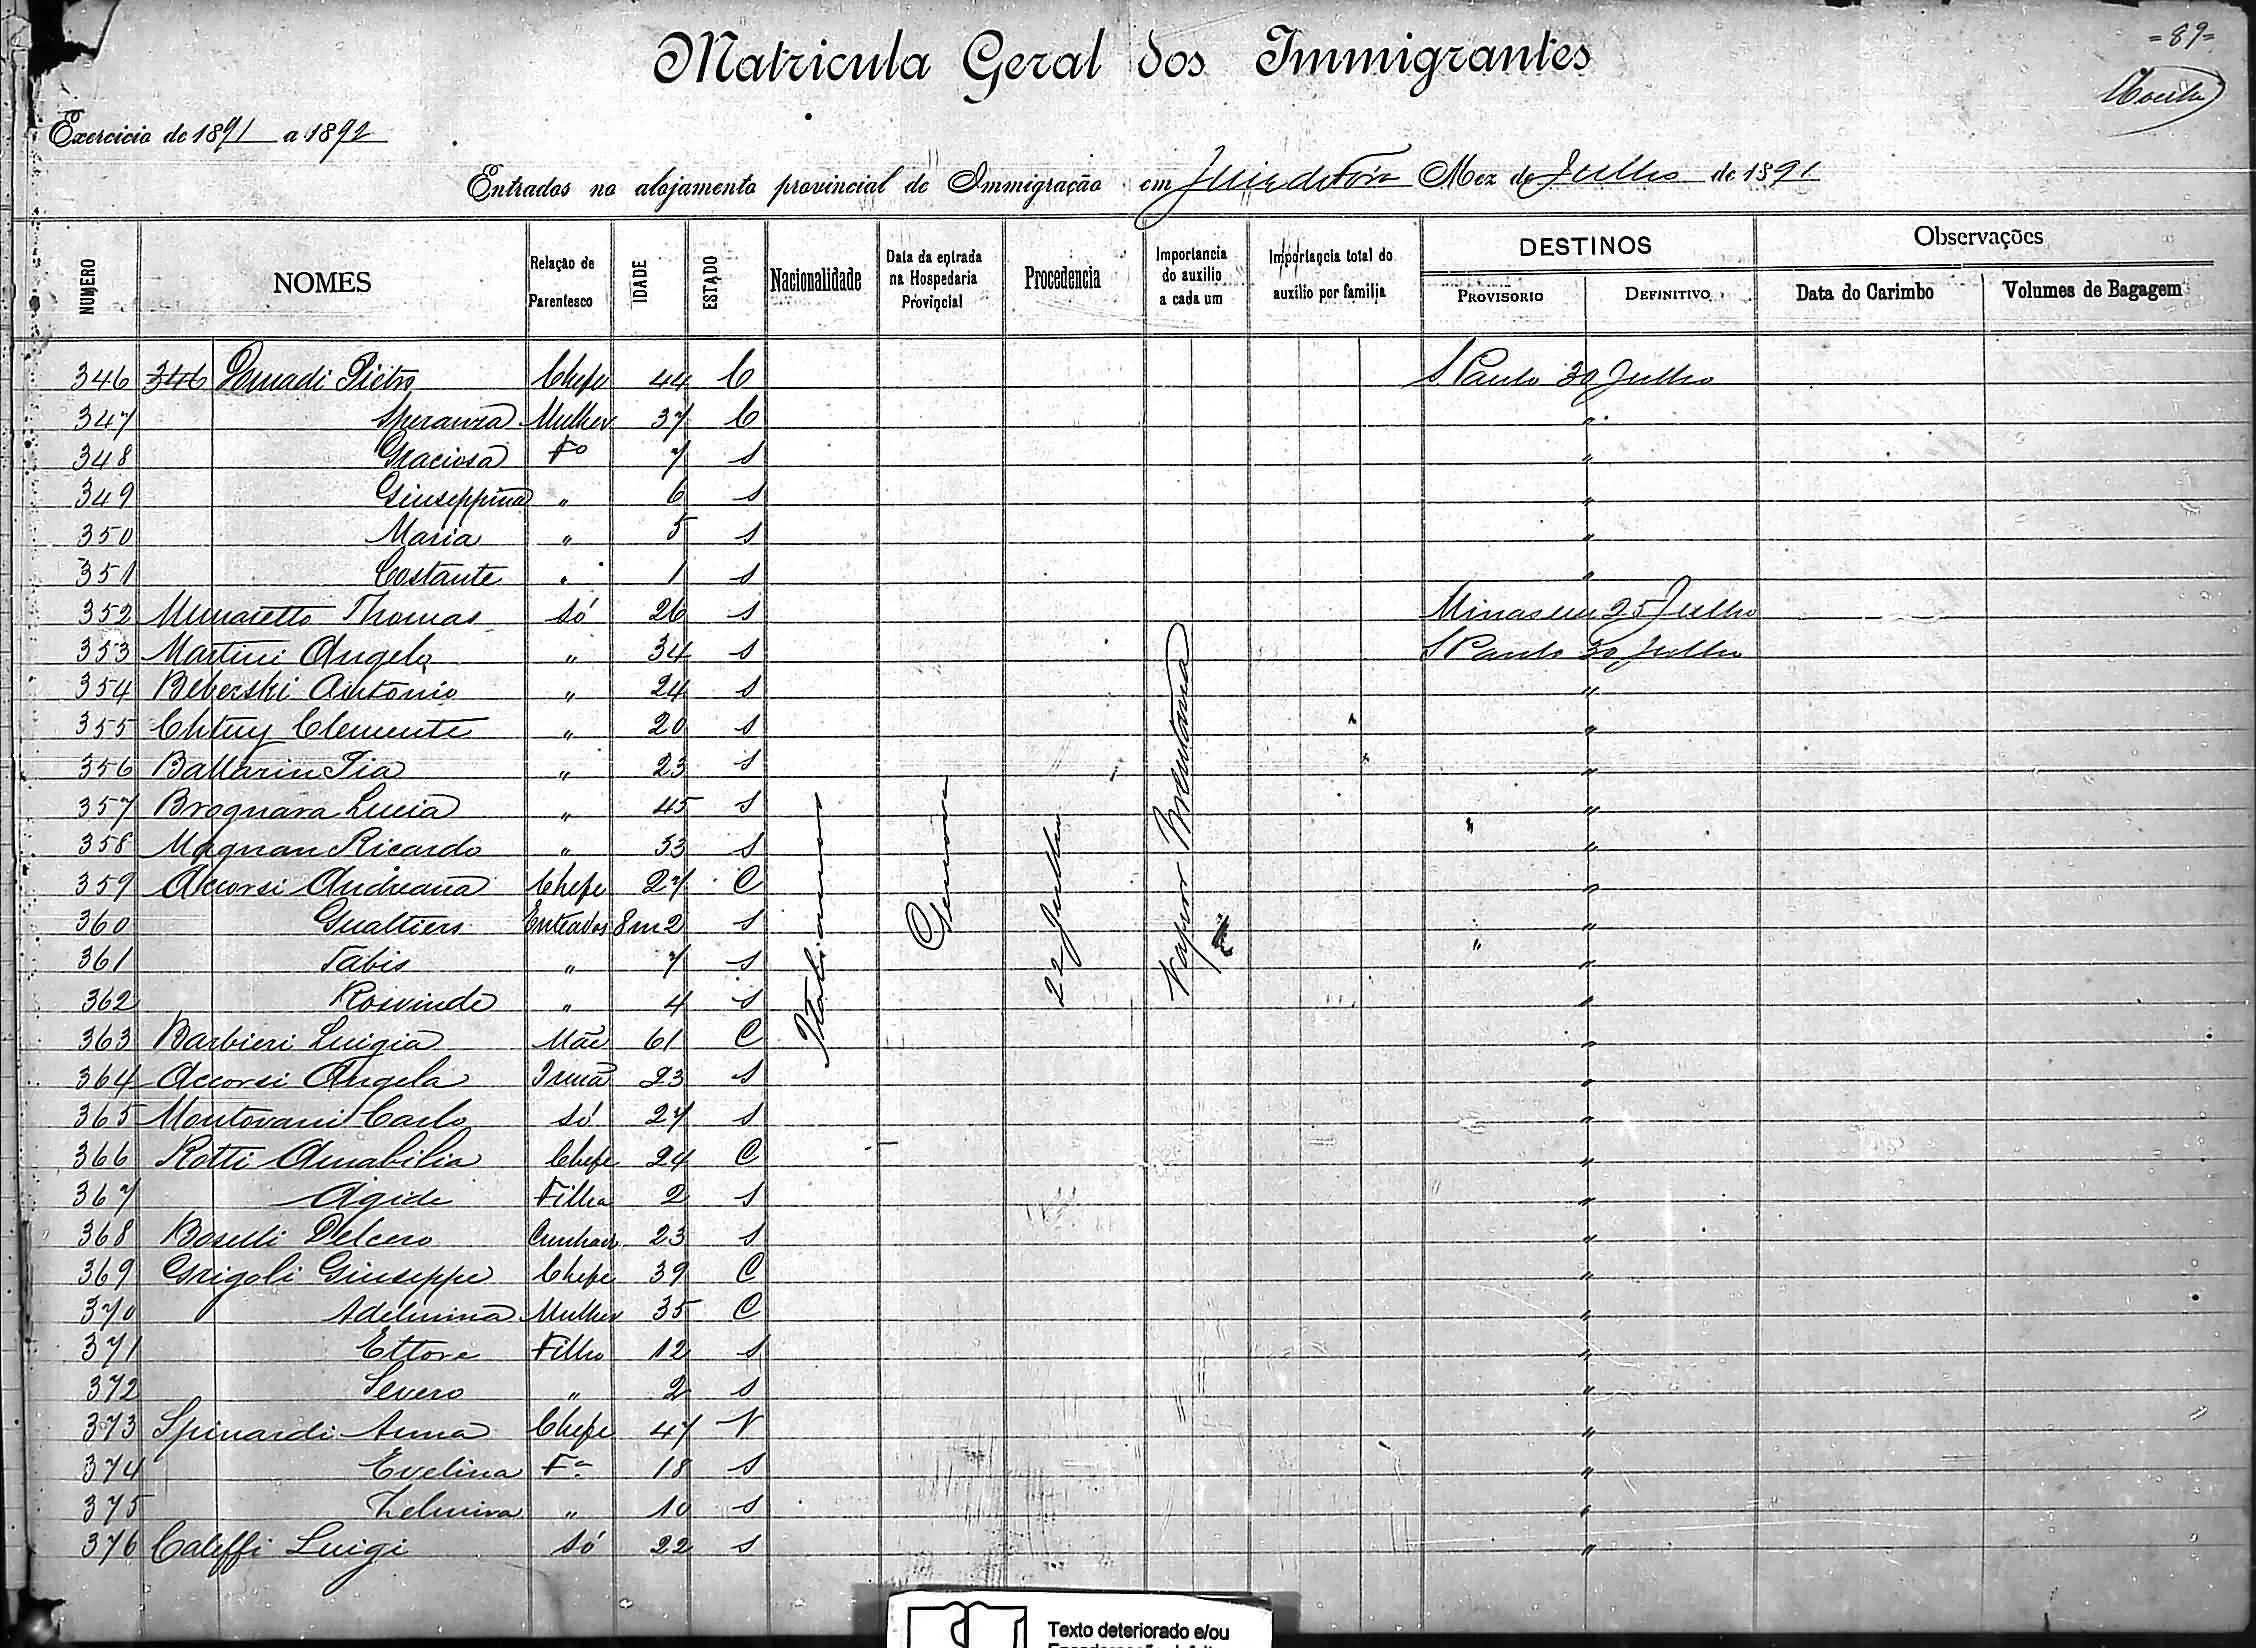 = 89 =
Matricula Geral dos Immigrantes
Exercicio de 1891 a 1892
Entrados no alojamento provincial de Immigração em Juiz de Fóra Mez de Julho de 1891
NUMERO NOMES Relação de Parentesco IDADE ESTADO Nacionalidade Data da entrada na Hospedaria Provincial Procedencia Importancia do auxilio a cada um Importancia total do auxilio por familia DESTINOS PROVISORIO DEFINITIVO Observações Data do Carimbo Volumes de Bagagem
346 346 Pietro Chefe 44 C S Paulo 30 Julho
347 Speranza Mulher 37 C "
348 Graciosa Fo 7 S "
349 Giuseppina " 6 S "
350 Maria " 5 S "
351 Costante " 1 S "
352 Munaretto Thomas Só 26 S Minas em 25 Julho
353 Martini Angelo " 34 S S Paulo 30 Julho
354 Beberski Antonio " 24 S "
355 Clemente " 20 S "
356 Ballarin Pia " 23 S "
357 Brognara Lucia " 45 S " "
358 Magnan Ricardo " 33 S "
359 Accorsi Andreana Chefe 27 C "
360 Gualtiero Enteados 8m2 S " "
361 Fabio " 7 S " "
362 Rosvinde " 4 S "
363 Barbieri Luigia Mãe 61 C "
364 Accorsi Angela Irmã 23 S "
365 Montovani Carlo Só 27 S "
366 Rotti Amabilia Chefe 24 C "
367 Agide Filha 2 S "
368 Boselli Cunhado 23 S "
369 Grigoli Giuseppe Chefe 39 C "
370 Adelmina Mulher 35 C "
371 Ettore Filho 12 S "
372 Severo " 2 S "
373 Spinardi Anna Chefe 47 V "
374 Evelina Fa 18 S "
375 Zelmira " 10 S "
376 Califfi Luigi Só 22 S "
Italianos
Genova
22 Julho
Vapor Mentana
Texto deteriorado e/ou